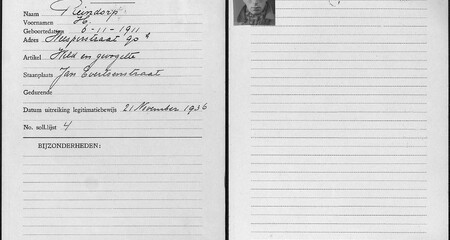 Naam Reindorp
Voornamen H.
Geboortedatum 6-11-1911
Adres Weesperstraat 90
Artikel Wild en gevogelte
Staanplaats Jan Evertsenstraat
Gedurende
Datum uitreiking legitimatiebewijs 21 November 1936
No. soll.lijst 4
BIJZONDERHEDEN: